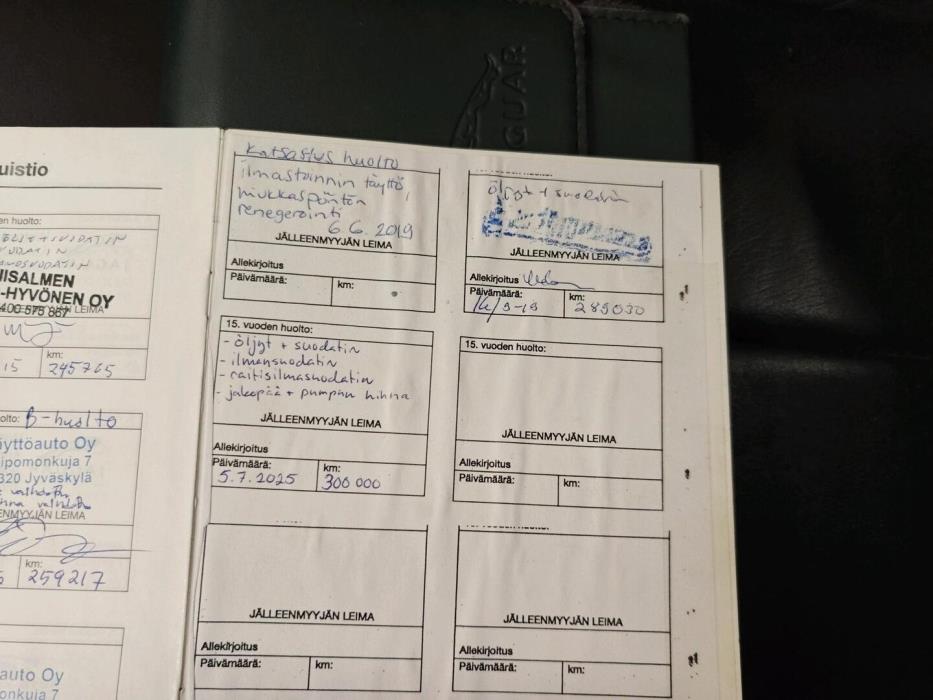 GUAR
uistio
en huolto:
IISALMEN
-HYVÖNEN OY
400 575 867
LEIMA
km:
15
245765
olto: B-huolto
äyttöauto Oy
ipomonkuja 7
320 Jyväskylä
ENMYYJÄN LEIMA
km:
259217
auto Oy
onkuja 7
Katsastus huolto
ilmastoinnin täyttö,
hiukkaspöntön
renegerointi
6.6.2019
JÄLLEENMYYJÄN LEIMA
Allekirjoitus
Päivämäärä:
km:
15. vuoden huolto:
- öljyt + suodatin
- ilmansuodatin
- raitisilmasuodatin
- jakopää + pumpun hihna
JÄLLEENMYYJÄN LEIMA
Allekirjoitus
Päivämäärä:
5.7.2025
km:
300 000
JÄLLEENMYYJÄN LEIMA
Allekirjoitus
Päivämäärä:
km:
öljyt + suodatin
JÄLLEENMYYJÄN LEIMA
Allekirjoitus
Päivämäärä:
km:
15. vuoden huolto:
JÄLLEENMYYJÄN LEIMA
Allekirjoitus
Päivämäärä:
km:
JÄLLEENMYYJÄN LEIMA
Allekirjoitus
Päivämäärä:
km: